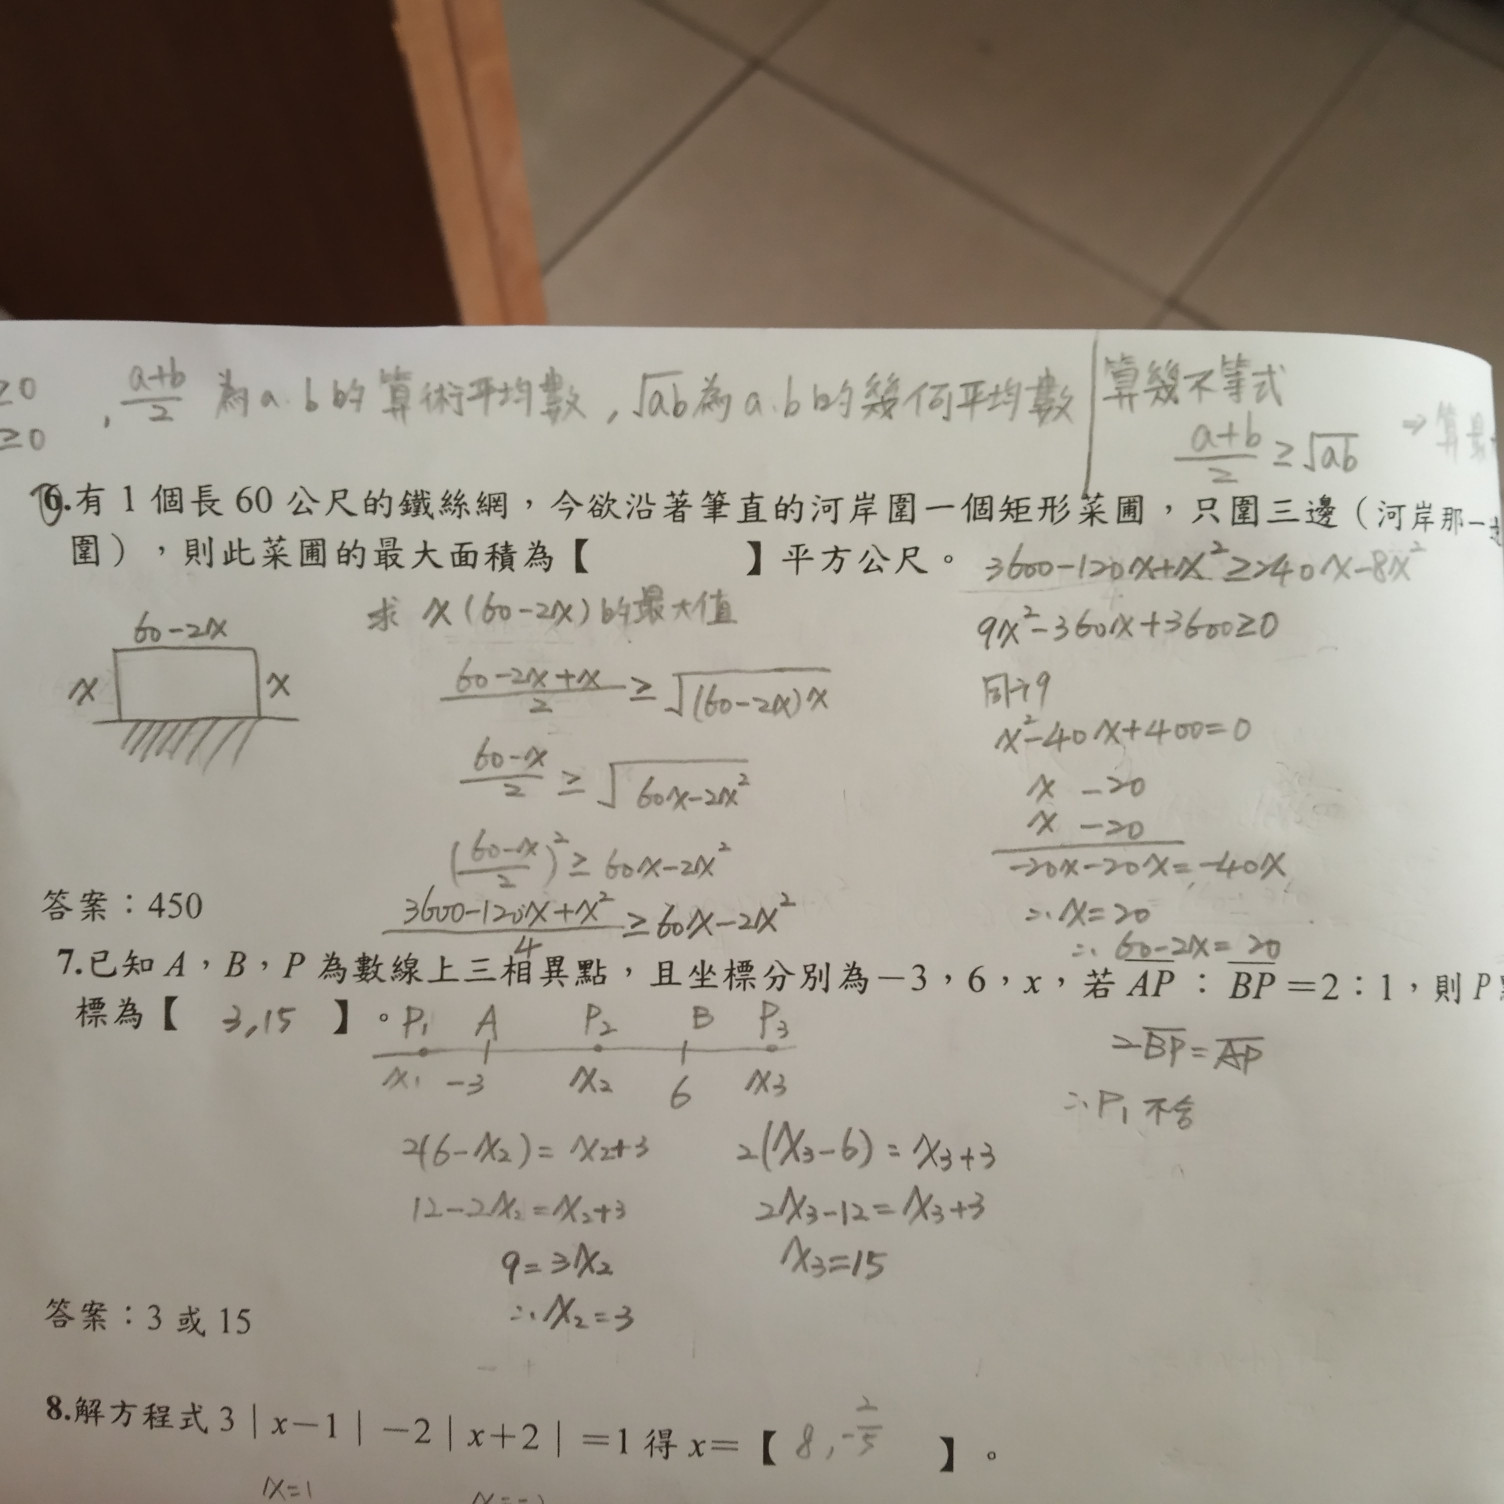 ≥0 , a+b/2 為a.b的算術平均數,√ab為a.b的幾何平均數
≥0
算幾不等式
a+b/2 ≥ √ab ⇒算幾
6.有 1 個長 60 公尺的鐵絲網，今欲沿著筆直的河岸圍一個矩形菜圃，只圍三邊（河岸那一
圍），則此菜圃的最大面積為【 】平方公尺。
60-2x
x x
求 x(60-2x)的最大值
60-2x+x/2 ≥ √(60-2x)x
60-x/2 ≥ √60x-2x²
(60-x/2)² ≥ 60x-2x²
3600-120x+x²/4 ≥ 60x-2x²
3600-120x+x² ≥ 240x-8x²
9x²-360x+3600≥0
同÷9
x²-40x+400=0
x -20
x -20
-20x-20x=-40x
∴x=20
∴ 60-2x=20
答案：450
7.已知 A，B，P 為數線上三相異點，且坐標分別為－3，6，x，若 AP：BP＝2：1，則 P
標為【 3,15 】。
P₁ A P₂ B P₃
x₁ -3 x₂ 6 x₃
2BP=AP
∴P₁不合
2(6-x₂)=x₂+3
12-2x₂=x₂+3
9=3x₂
∴x₂=3
2(x₃-6)=x₃+3
2x₃-12=x₃+3
x₃=15
答案：3 或 15
8.解方程式 3｜x－1｜－2｜x＋2｜＝1 得 x＝【 8,-2/5 】。
x=1